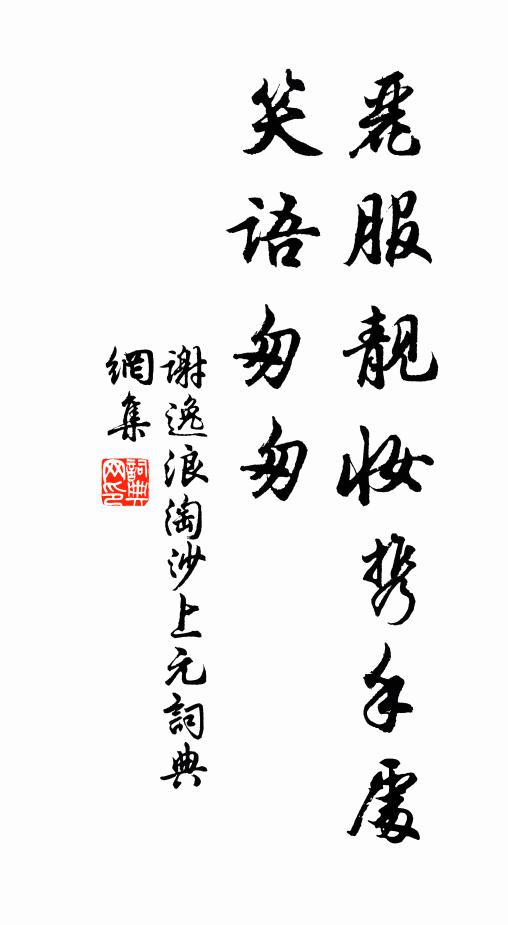 麗服靚妝携手處
笑語匆匆
謝逸浪淘沙上元詞典
網集
詞典網印